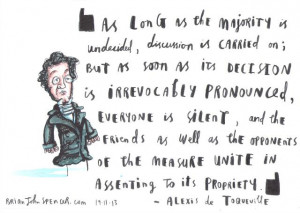 As long as the majority is
undecided, discussion is carried on;
but as soon as its DECISION
is IRREVOCABLY PRONOUNCED,
EVERYONE is SILENT, and the
friends as well as the opponents
of the measure unite in
assenting to its propriety.
- Alexis de Toqueville
BRIAN John SPENCER.com 19.11.13